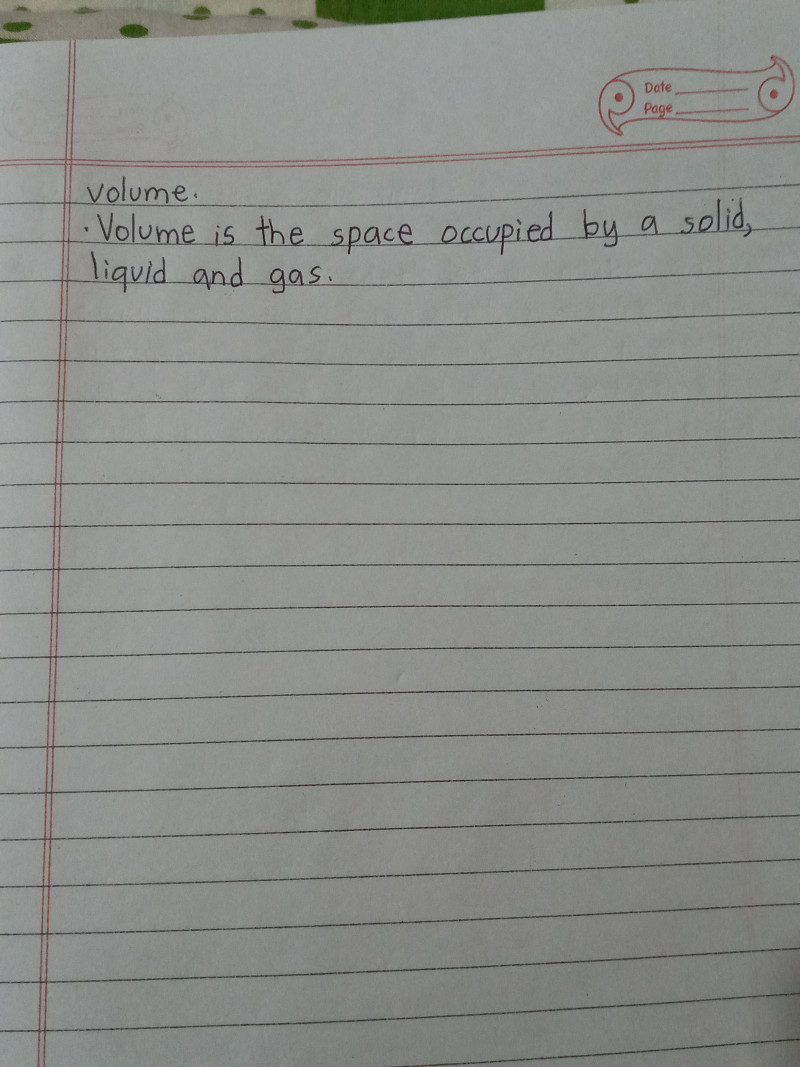 Date
Page
volume.
· Volume is the space occupied by a solid,
liquid and gas.